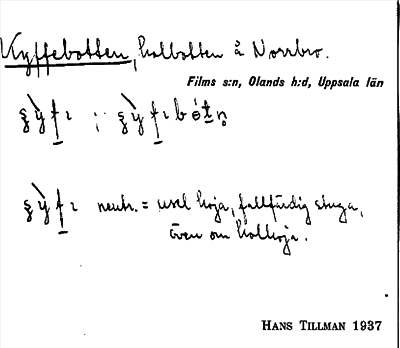 Kyffebotten, kolbotten å Norrbro.
Films s:n, Olands h:d, Uppsala län
neutr. = usel koja, fallfärdig stuga,
även om kolkoja.
HANS TILLMAN 1937